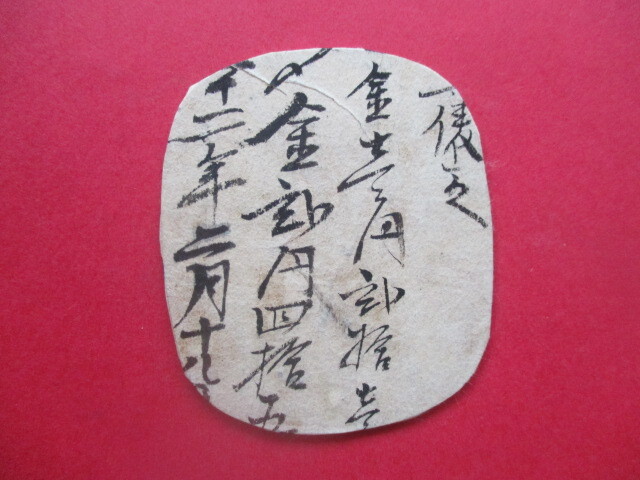 一俵 
金壱円弐拾壱
〆金弐円四拾五
十二年二月十八